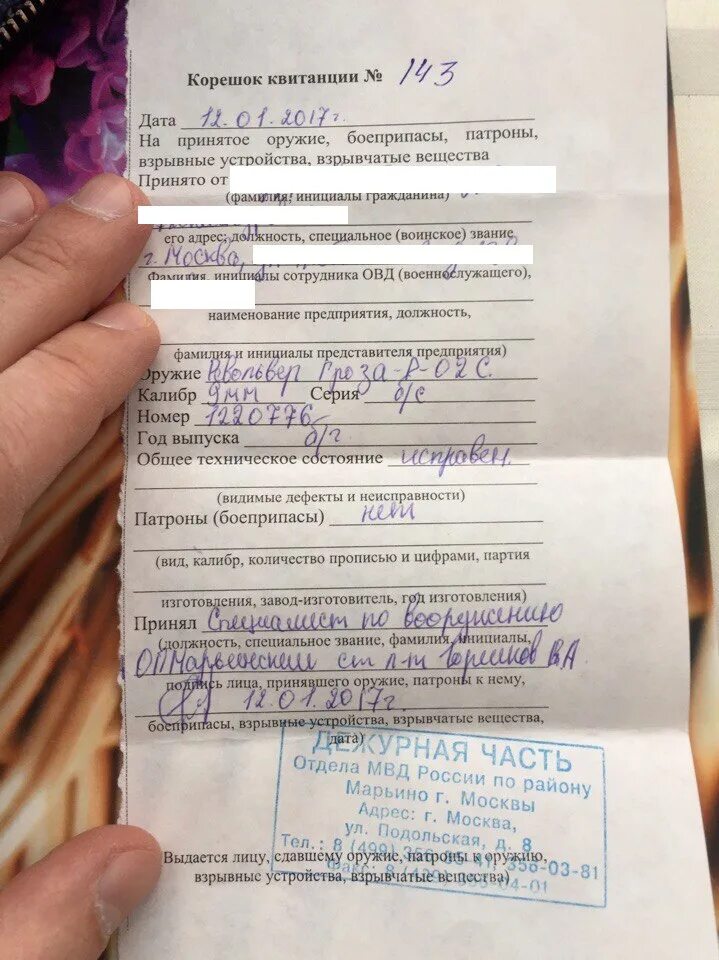 Корешок квитанции № 143
Дата 12.01.2017г.
На принятое оружие, боеприпасы, патроны,
взрывные устройства, взрывчатые вещества
Принято от
(фамилия, инициалы гражданина)
его адрес; должность, специальное (воинское) звание
г. Москва,
Фамилия, инициалы сотрудника ОВД (военнослужащего),
наименование предприятия, должность,
фамилия и инициалы представителя предприятия)
Оружие Револьвер Гроза-Р-02С.
Калибр 9мм Серия б/с
Номер 1220776
Год выпуска б/г.
Общее техническое состояние исправен.
(видимые дефекты и неисправности)
Патроны (боеприпасы) нет
(вид, калибр, количество прописью и цифрами, партия
изготовления, завод-изготовитель, год изготовления)
Принял Специалист по вооружению
(должность, специальное звание, фамилия, инициалы,
ст. л-т В.А.
подпись лица, принявшего оружие, патроны к нему,
12.01.2017г.
боеприпасы, взрывные устройства, взрывчатые вещества,
дата)
ДЕЖУРНАЯ ЧАСТЬ
Отдела МВД России по району
Марьино г. Москвы
Адрес: г. Москва,
ул. Подольская, д. 8
Тел.: 8 (499) 356-03-81
Факс: 8
Выдается лицу, сдавшему оружие, патроны к оружию,
взрывные устройства, взрывчатые вещества)